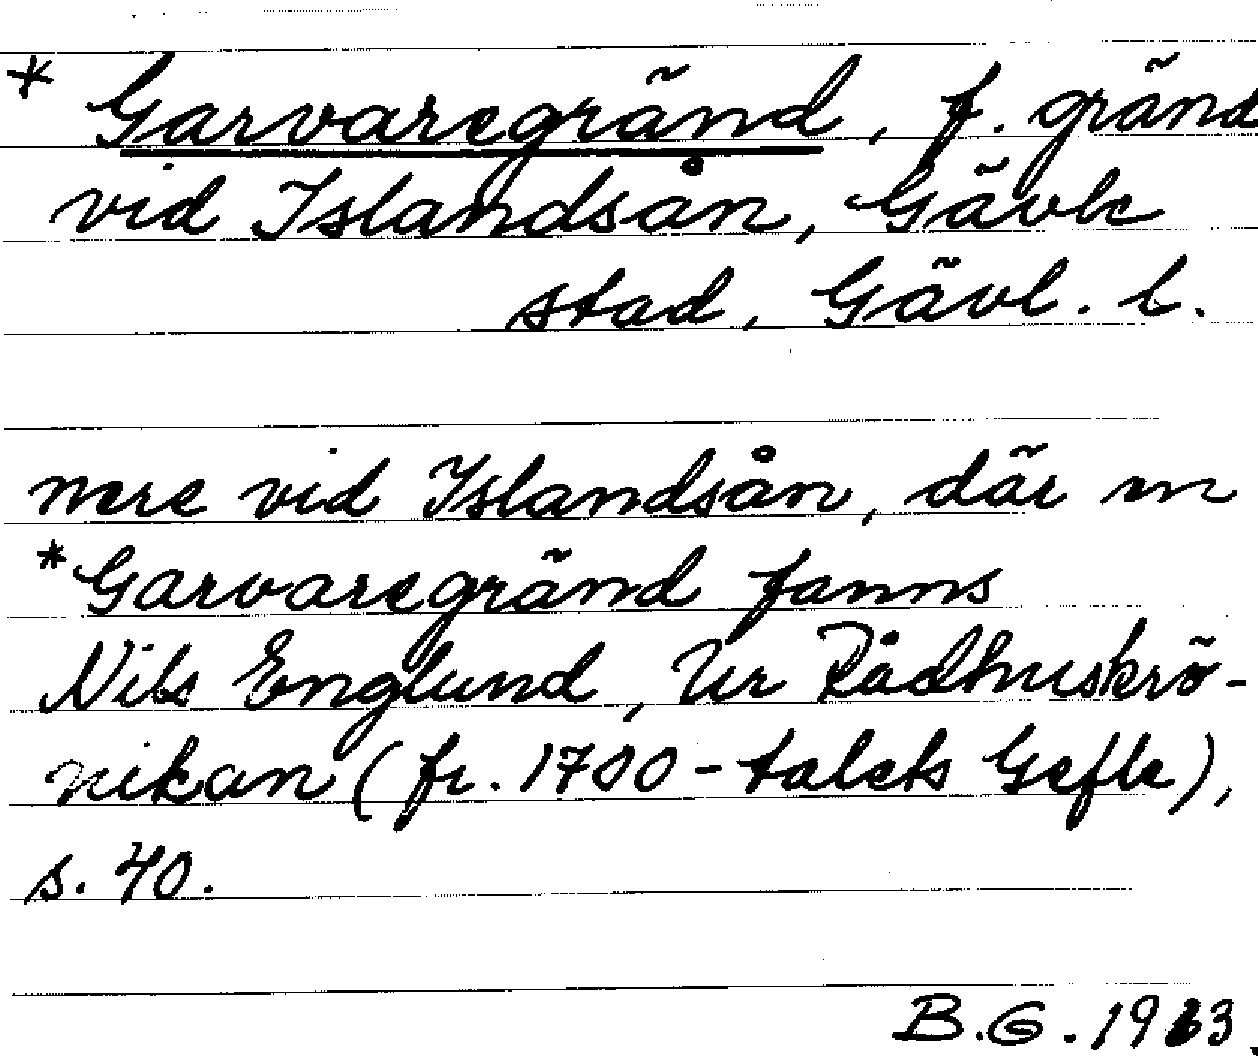 * Garvaregränd, f. gränd
vid Islandsån, Gävle
stad, Gävl. l.
nere vid Islandsån, där en
*Garvaregränd fanns
Nils Englund, Ur Rådhuskrö-
nikan (fr. 1700-talets Gefle),
s. 40.
B.G. 1963.